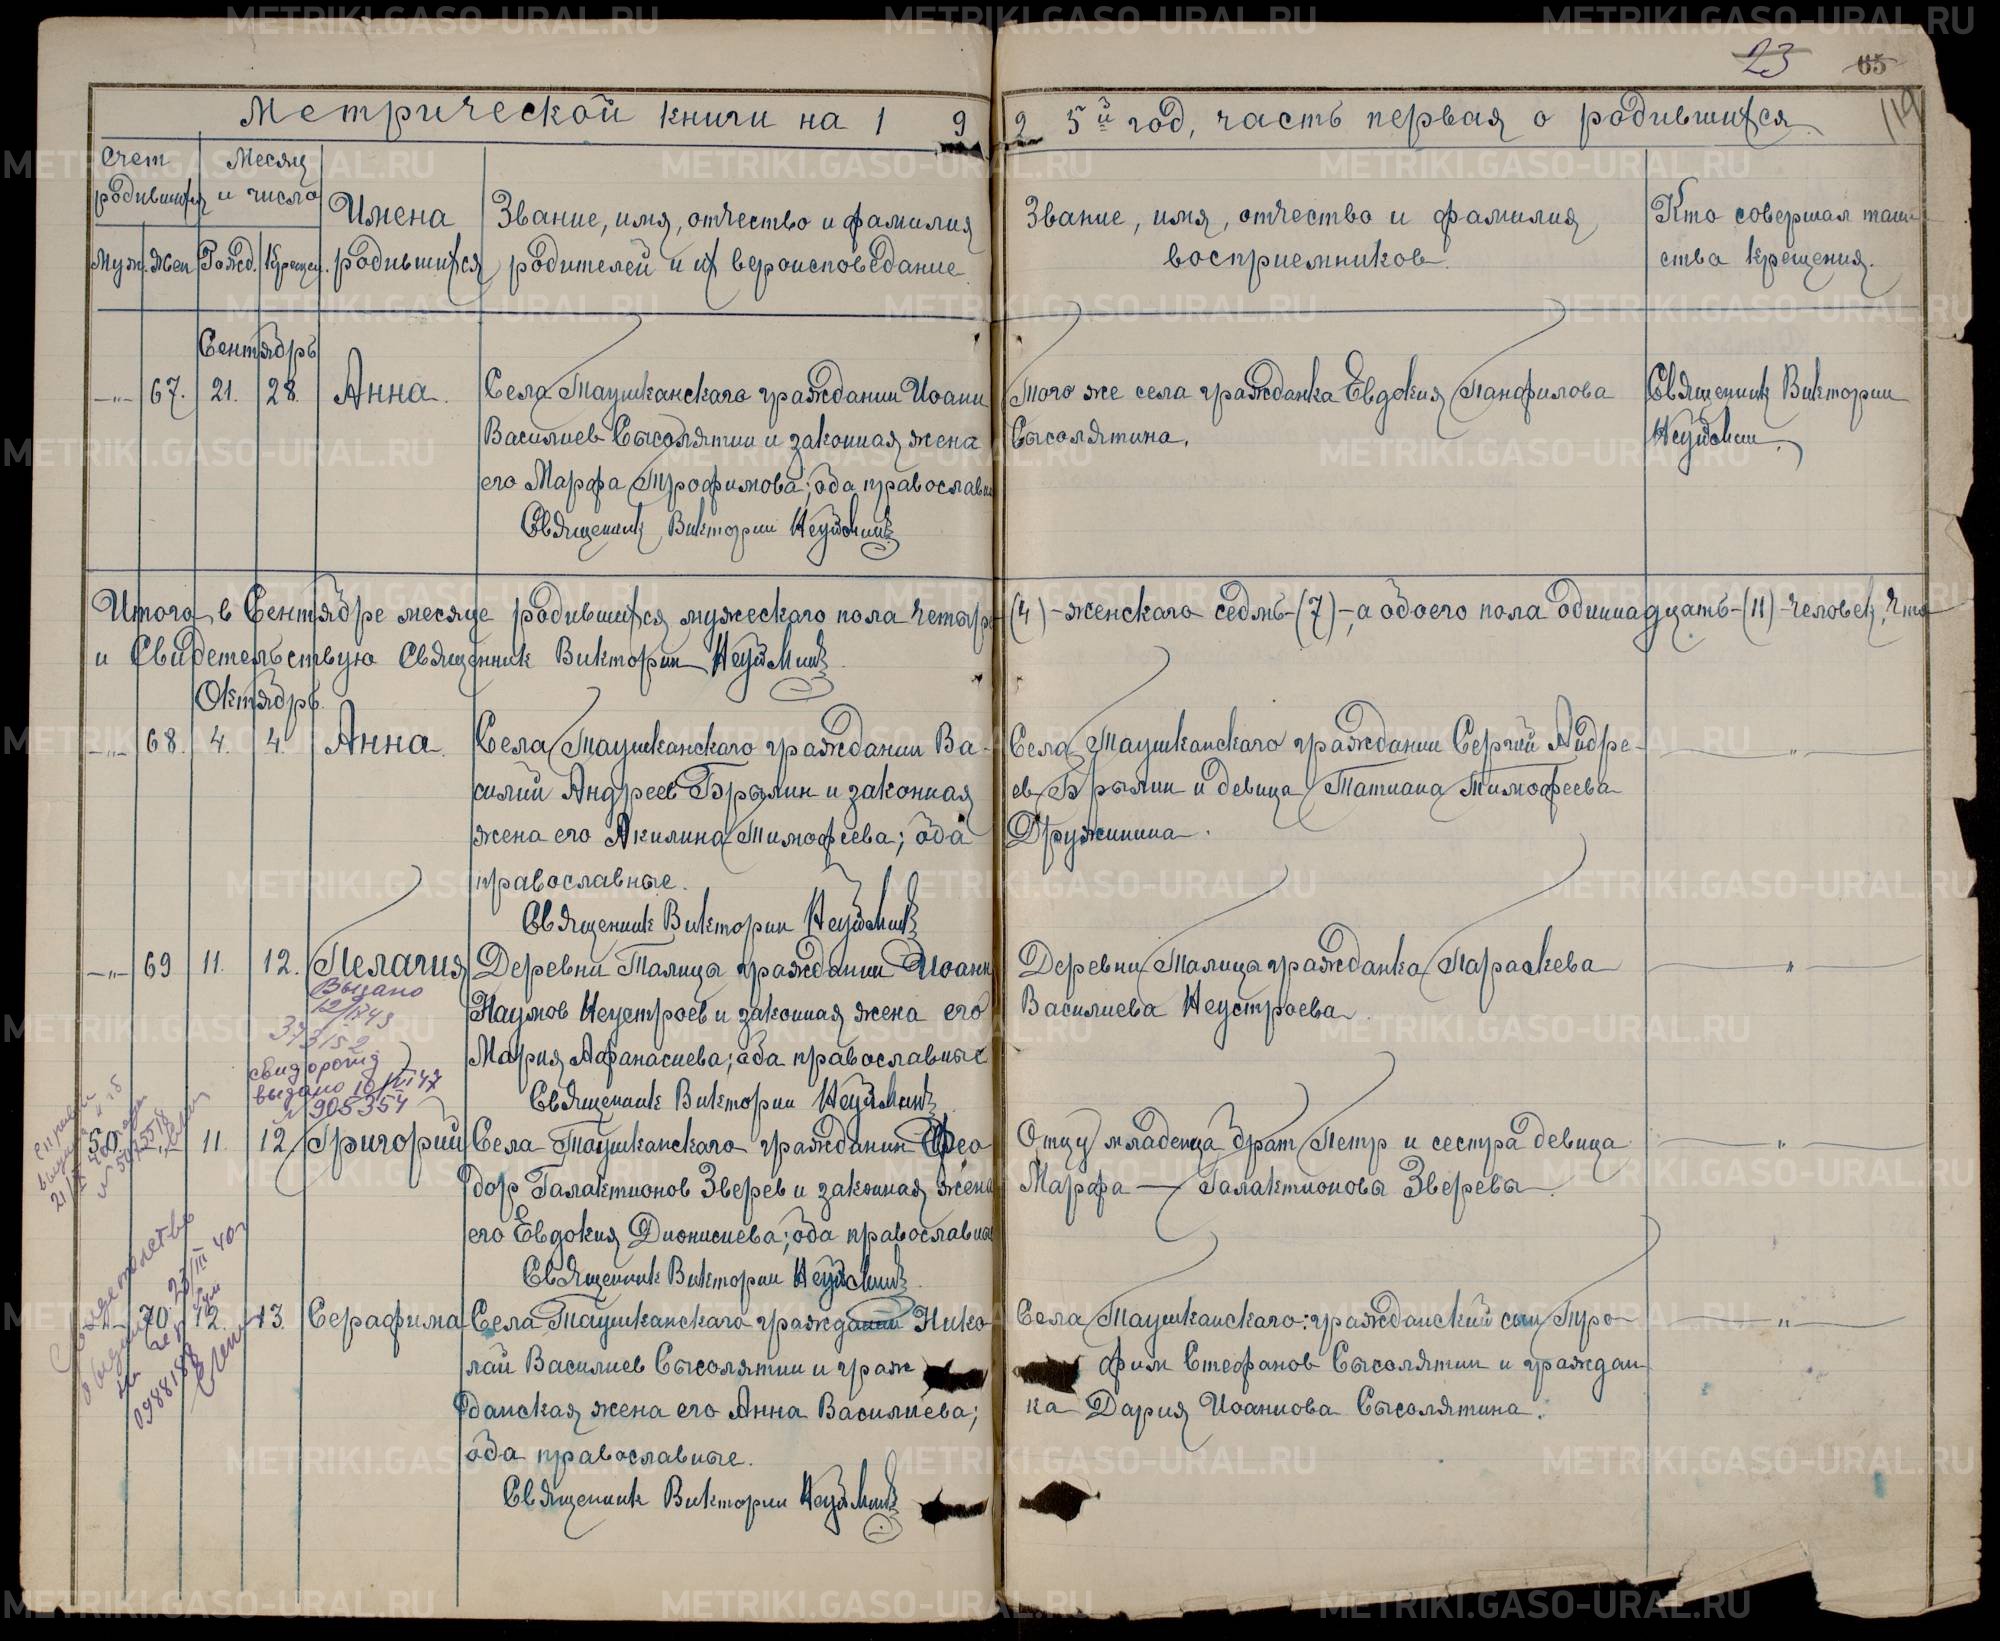 23 65
119
Метрической книги на 1925й год, часть первая о родившихся.
Счет родившихся
Месяц и число
Муж. Жен. Рожд. Крещен.
Имена родившихся
Звание, имя, отчество и фамилия
родителей и их вероисповедание
Звание, имя, отчество и фамилия
восприемников.
Кто совершал таин-
ства крещения.
Сентябрь
—„— 67. 21. 28. Анна.
Села Таушканскаго гражданин Иоанн
Василиев Сысолятин и законная жена
его Марфа Трофимова; оба православн
Священник Викторин Неуймин
Того же села гражданка Евдокия Панфилова
Сысолятина.
Священник Викторин
Неуймин.
Итого в Сентябре месяце родившихся мужескаго пола четыре (4) – женскаго седмь (7) –, а обоего пола одиннадцать – (11) человек, что
и свидетельствую Священник Викторин Неуймин
Октябрь.
—„— 68. 4. 4. Анна.
Села Таушканскаго гражданин Ва-
силий Андреев Брылин и законная
жена его Акилина Тимофеева; оба
православные.
Священник Викторин Неуймин
Села Таушканскаго гражданин Сергий Андре-
ев Брылин и девица Татиана Тимофеева
Дружинина.
—„—
—„— 69 11. 12. Пелагия
Выдано
373152
свид о рожд
выдано 10/VII 47
№ 905354
Деревни Талицы гражданин Иоанн
Наумов Неустроев и законная жена его
Мария Афанасиева; оба православные
Священник Викторин Неуймин
Деревни Талица гражданка Параскева
Василиева Неустроева.
—„—
50. —„— 11. 12. Григорий
Села Таушканскаго гражданин Фео
дор Галактионов Зверев и законная жена
его Евдокия Дионисиева; оба православны
Священник Викторин Неуймин
Отцу младенца брат Петр и сестра девица
Марфа — Галактионовы Зверевы.
—„—
Свидетельство
23/III 40г
—„— 70. 12. 13. Серафима
Села Таушканскаго гражданин Нико-
лай Василиев Сысолятин и граж
данская жена его Анна Василиева;
оба православные.
Священник Викторин Неуймин
Села Таушканскаго: гражданский сын Тро
фим Стефанов Сысолятин и граждан
ка Дария Иоаннова Сысолятина.
—„—
METRIKI.GASO-URAL.RU